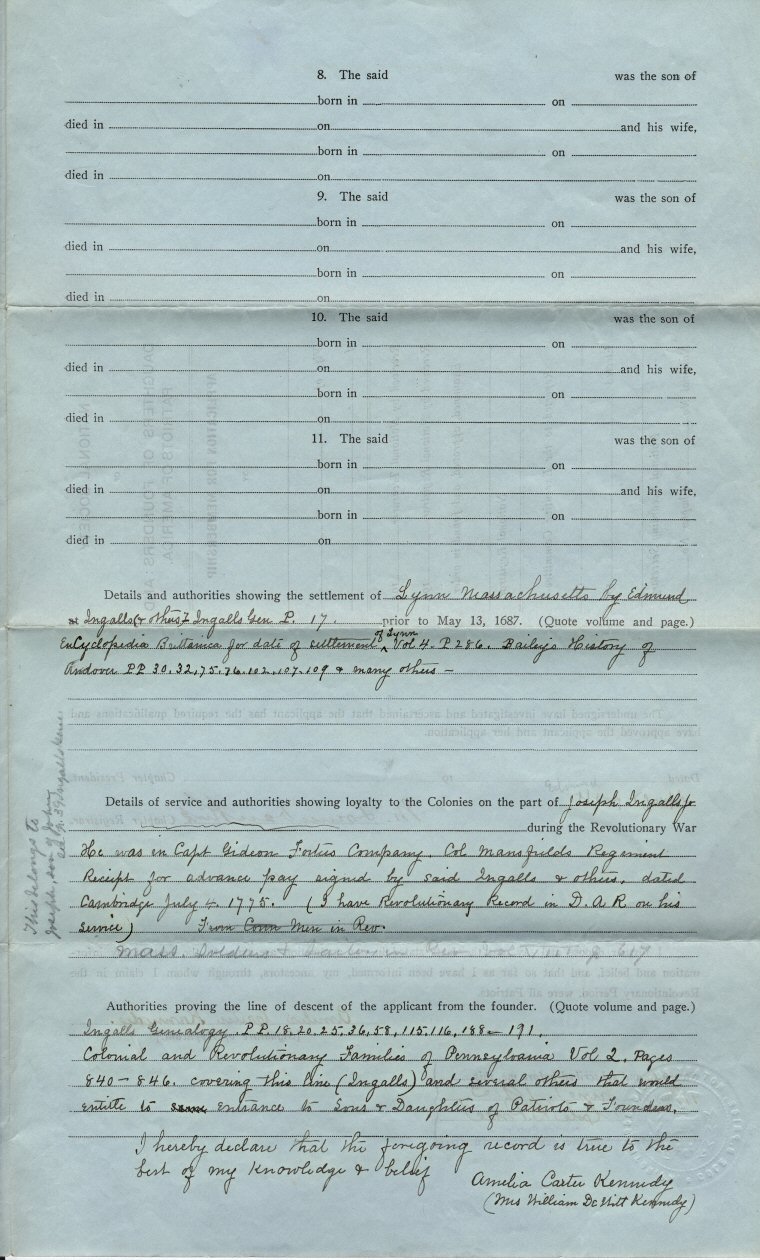 8. The said was the son of
born in on
died in on and his wife,
born in on
died in on
9. The said was the son of
born in on
died in on and his wife,
born in on
died in on
10. The said was the son of
born in on
died in on and his wife,
born in on
died in on
11. The said was the son of
born in on
died in on and his wife,
born in on
died in on
Details and authorities showing the settlement of Lynn Massachusetts by Edmund
Ingalls (& others) Ingalls Gen P. 17. prior to May 13, 1687. (Quote volume and page.)
Encyclopedia Brittanica for date of settlement of Lynn Vol 4. P 286. Bailey's History of
Andover PP 30, 32, 75, 76, 102, 107, 109 & many others —
Details of service and authorities showing loyalty to the Colonies on the part of Joseph Ingalls Jr
during the Revolutionary War
He was in Capt Gideon Fosters Company. Col Mansfields Regiment
Receipt for advance pay signed by said Ingalls & others, dated
Cambridge July 4. 1775. (I have Revolutionary Record in D. A R on his
service) From Conn Men in Rev.
Mass. Soldiers & Sailors in Rev Vol p 617
This belongs to
Joseph, son of
Authorities proving the line of descent of the applicant from the founder. (Quote volume and page.)
Ingalls Genealogy. PP. 18, 20, 25, 36, 58, 115, 116, 188 – 191,
Colonial and Revolutionary Families of Pennsylvania Vol 2. Pages
840 – 846. covering this line (Ingalls) and several others that would
entitle to same entrance to Sons & Daughters of Patriots & Founders.
I hereby declare that the foregoing record is true to the
best of my Knowledge & belief
Amelia Carter Kennedy
(Mrs William DeWitt Kennedy)